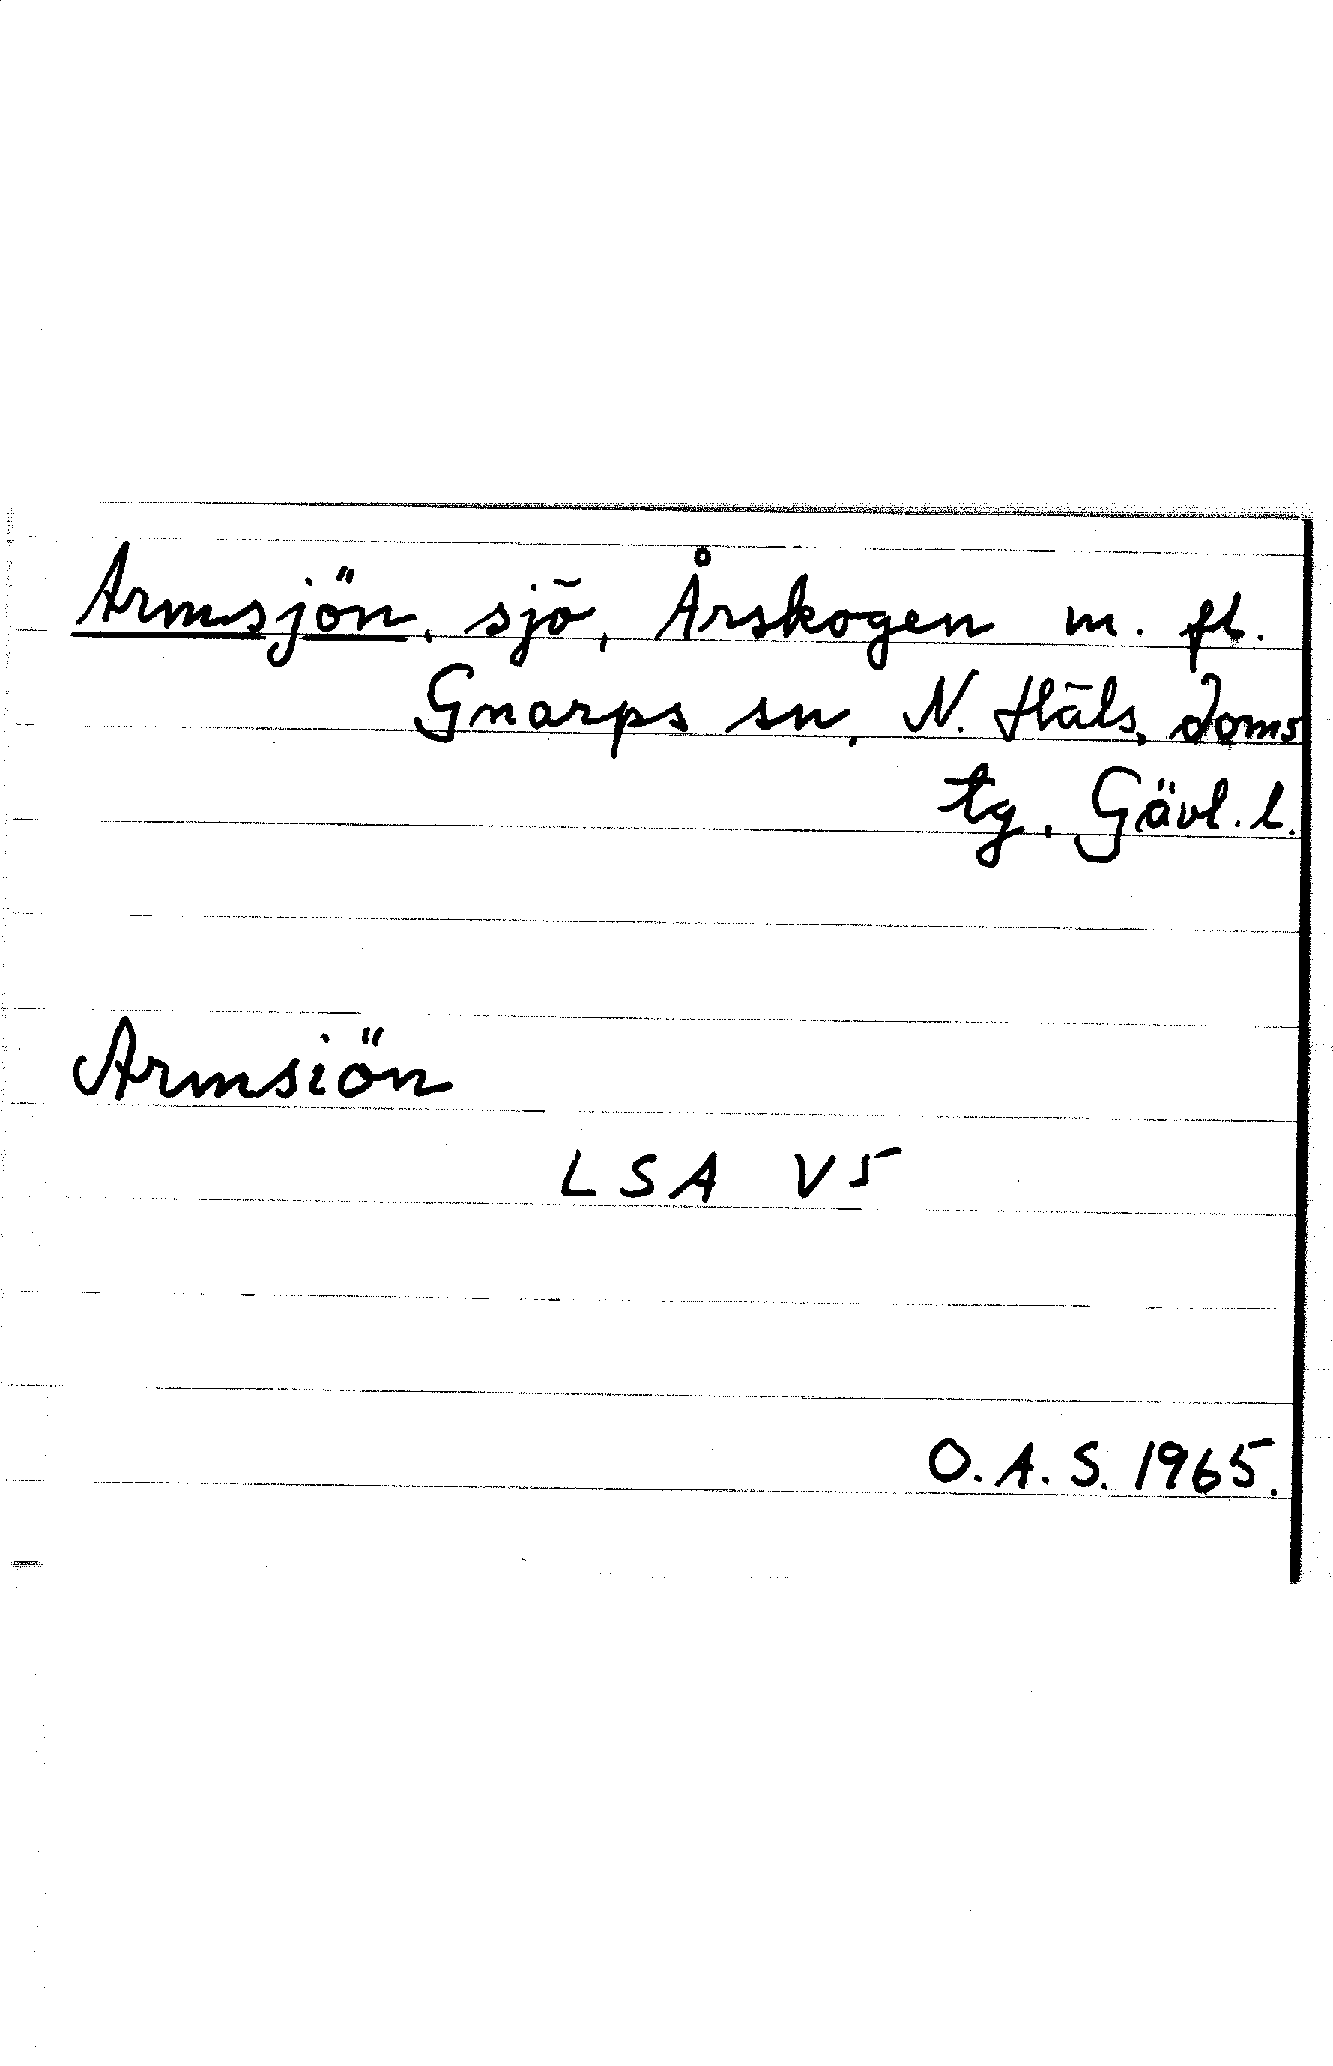 Armsjön, sjö, Årskogen m. fl.
Gnarps sn, N. Häls. doms
tg, Gävl. l.
Armsiön
LSA V5
O. A. S. 1965.